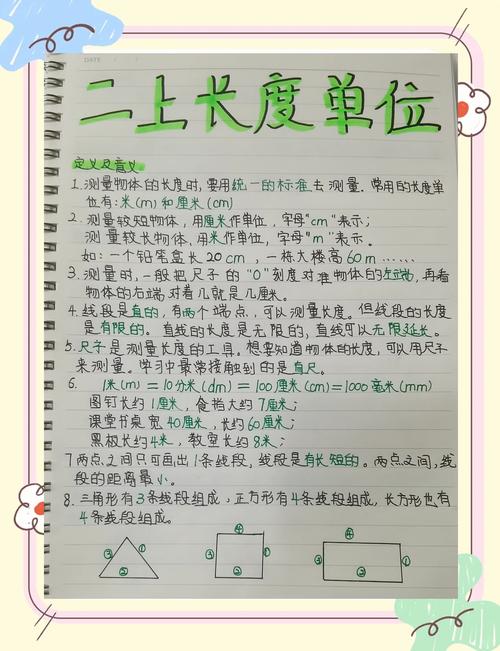 DATE
二上长度单位
定义及意义
1.测量物体的长度时,要用统一的标准去测量。常用的长度单
位有:米(m)和厘米(cm)
2.测量较短物体,用厘米作单位,字母"cm"表示;
测量较长物体,用米作单位,字母"m"表示。
如:一个铅笔盒长20cm,一栋大楼高60m……
3.测量时,一般把尺子的"0"刻度对准物体的左端,再看
物体的右端对着几就是几厘米。
4.线段是直的,有两个端点,可以测量长度。但线段的长度
是有限的。直线的长度是无限的,直线可以无限延长。
5.尺子是测量长度的工具。想要知道物体的长度,可以用尺子
来测量。学习中最常接触到的是直尺。
6. 1米(m)=10分米(dm)=100厘米(cm)=1000毫米(mm)
图钉长约1厘米,食指大约7厘米;
课堂书桌宽40厘米,长约60厘米;
黑板长约4米,教室长约8米;
7两点之间只可画出1条线段,线段是有长短的。两点之间,线
段的距离最小。
8.三角形有3条线段组成,正方形有4条线段组成,长方形也有
4条线段组成。
④ ④
③ ① ③ ① ③ ①
② ② ②